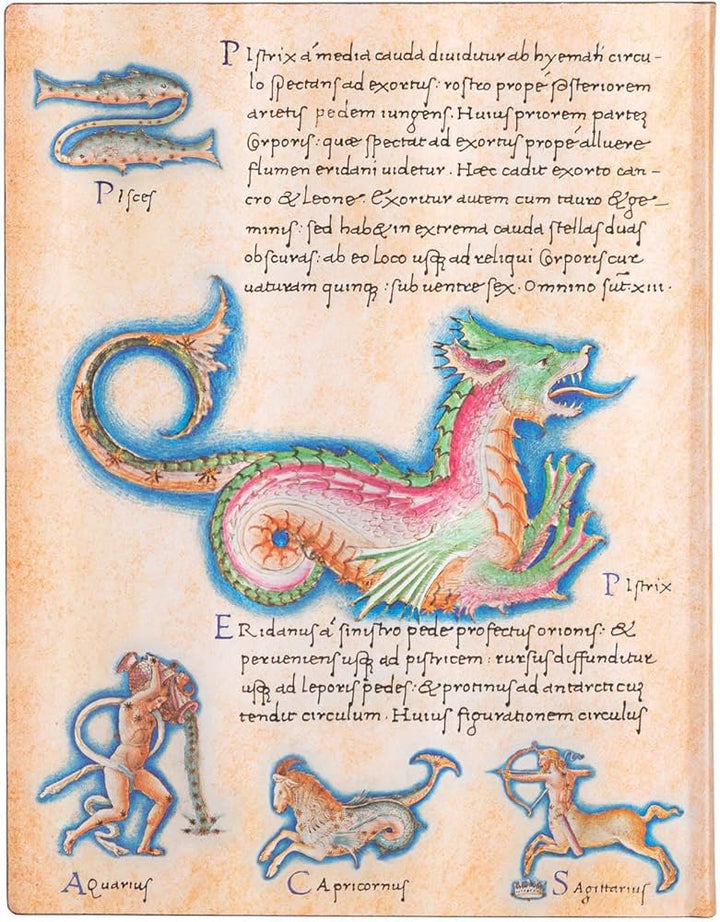 PIsces
PIstrix á media cauda diuiditur ab hyemali circu-
lo spectans ad exortus: rostro propé posteriorem
arietis pedem iungens. Huius priorem partez
Corporis: quæ spectat ad exortus propé alluere
flumen eridani uidetur. Hæc cadit exorto can-
cro & Leone. Exoritur autem cum tauro & ge-
minis: sed hab& in extrema cauda stellas duas
obscuras: ab eo loco usq; ad reliqui Corporis cur
uaturam quinq;: sub uentre sex. Omnino sūt. xiii.
PIstrix
ERidanus á sinistro pede profectus orionis: &
perueniens usq; ad pistricem: rursus diffunditur
usq; ad leporis pedes: & protinus ad antarcticuz
tendit circulum. Huius figurationem circulus
AQuarius
CApricornus
SAgittarius